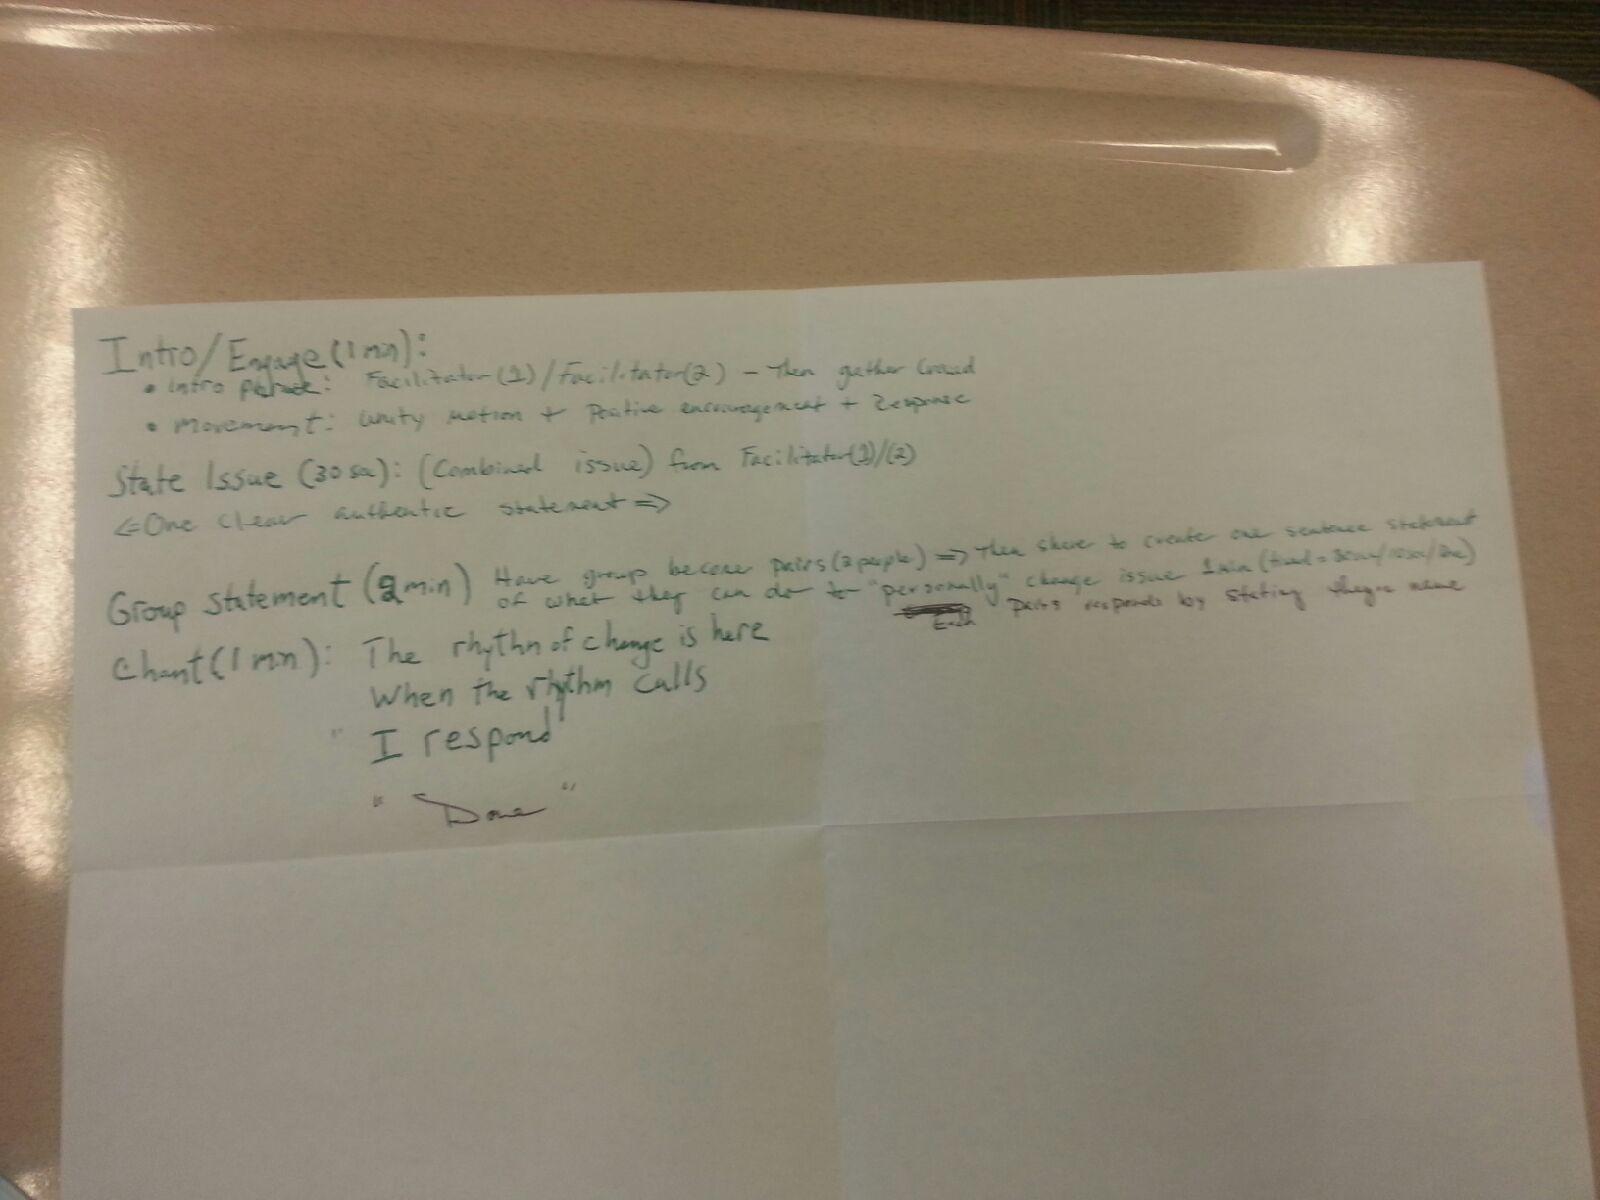 Intro/Engage (1 min):
• Intro phrase: Facilitator (1)/Facilitator(2) – Then gather Crowd
• Movement: Unity motion + Positive encouragement + Response
State Issue (30 sec): (Combined issue) from Facilitator(1)/(2)
⇐ One clear authentic statement ⇒
Group Statement (2 min) Have group become pairs (2 people) ⇒ Then share to create one sentence statement
of what they can do to "personally" change issue 1 min (
Each pairs responds by stating name
Chant (1 min): The rhythm of change is here
When the rhythm calls
" I respond
" Done "